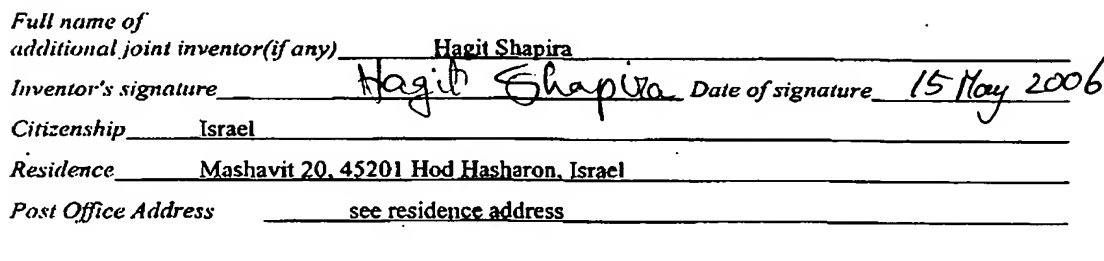 Full name of
additional joint inventor(if any) Hagit Shapira
Inventor's signature Hagit Shapira Date of signature 15 May 2006
Citizenship Israel
Residence Mashavit 20, 45201 Hod Hasharon, Israel
Post Office Address see residence address